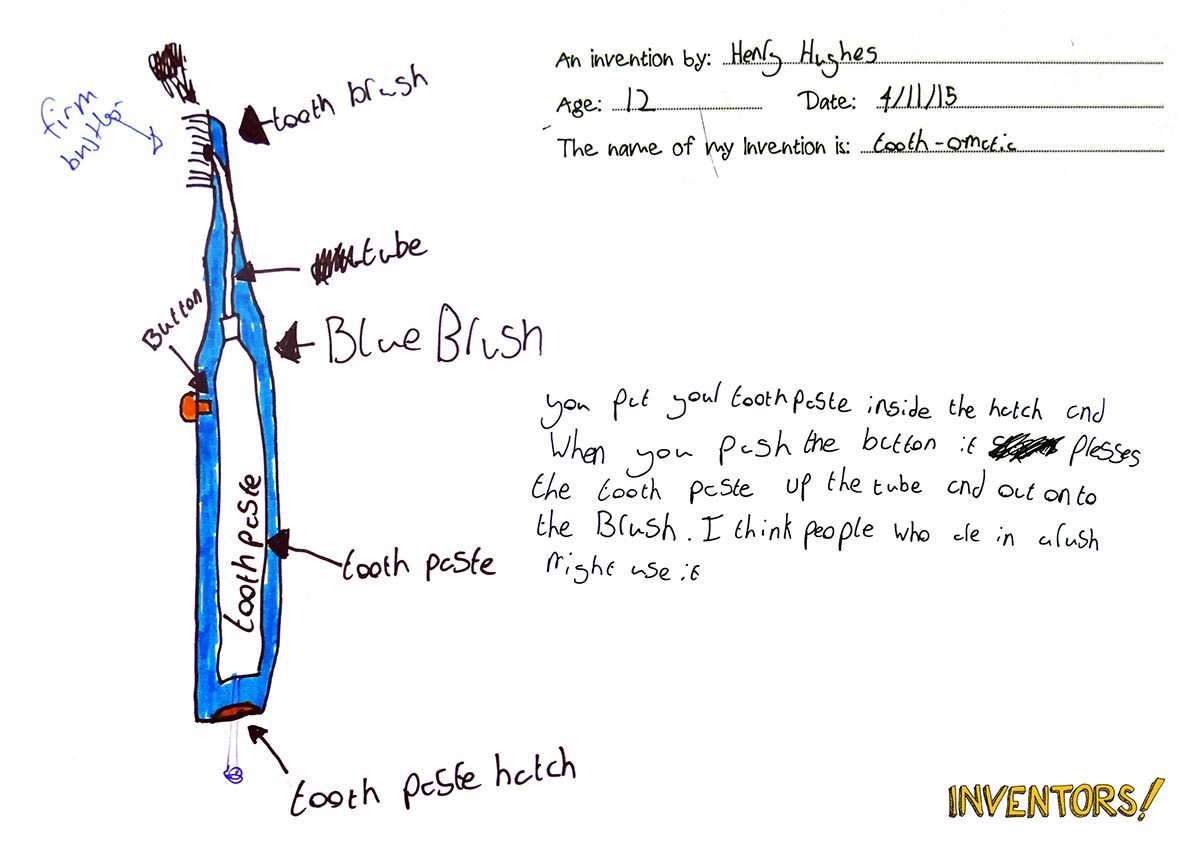 An invention by: Henry Hughes
Age: 12 Date: 4/11/15
The name of my Invention is: tooth-omatic
firm
bristles
tooth brush
tube
Button
Blue Brush
you put your toothpaste inside the hatch and
When you push the button it presses
the tooth paste up the tube and out onto
the Brush. I think people who are in a rush
might use it
toothpaste
tooth paste
tooth paste hatch
INVENTORS!